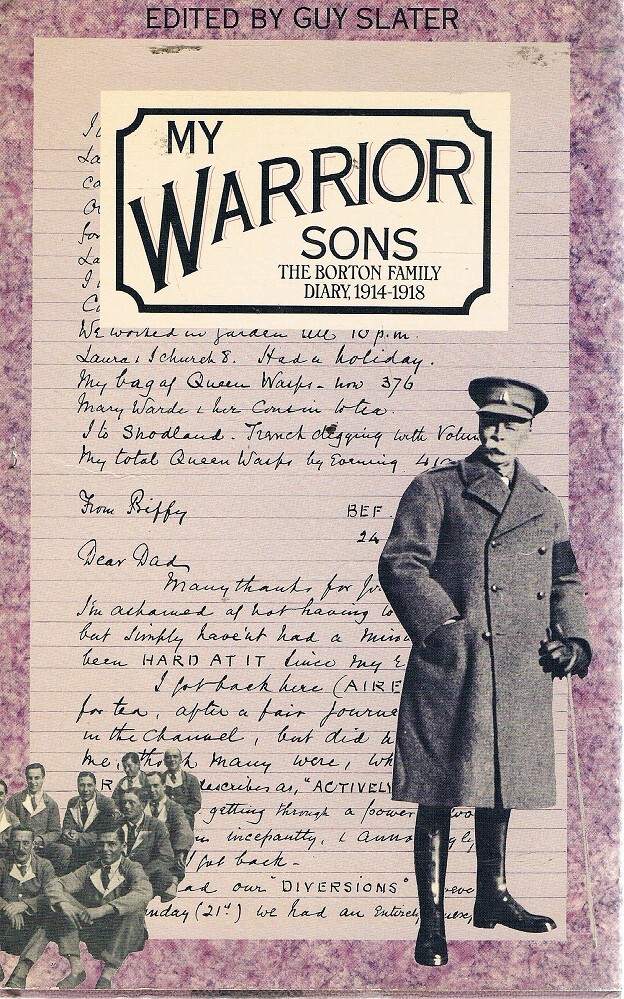 EDITED BY GUY SLATER
MY
WARRIOR
SONS
THE BORTON FAMILY
DIARY, 1914-1918
We worked in garden till 10 p.m.
Laura & I church 8. Had a holiday.
My bag of Queen Wasps - now 376
Mary Warde & her Cousin to tea.
I to Shodland. Trench digging with
My total Queen Wasps by Evening
From Biffy
BEF.
24
Dear Dad
Many thanks for
I'm ashamed of not having
but simply have'nt had a
been HARD AT IT since my
I got back here (
for tea, after a fair
in the channel, but did
me, though many were,
describes as, "ACTIVELY
getting through a power
incessantly, &
got back -
our "DIVERSIONS"
(21st) we had an Entirely